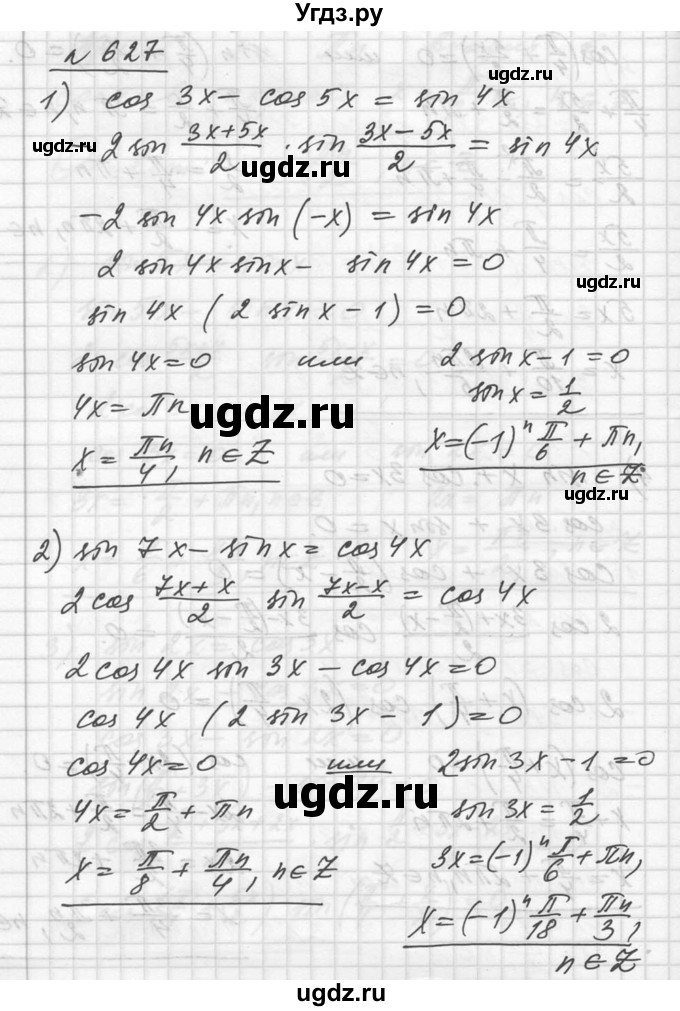 Угдз.ру
№ 627
ugdz.ru
1) cos 3x − cos 5x = sin 4x
ugdz.ru
2 sin (3x+5x)/2 · sin (3x−5x)/2 = sin 4x
ugdz.ru
−2 sin 4x sin (−x) = sin 4x
2 sin 4x sin x − sin 4x = 0
ugdz.ru
sin 4x (2 sin x − 1) = 0
sin 4x = 0 или 2 sin x − 1 = 0
4x = πn sin x = 1/2
ugdz.ru
x = πn/4, n ∈ Z x = (−1)^n π/6 + πn,
n ∈ Z.
ugdz.ru
2) sin 7x − sin x = cos 4x
2 cos (7x+x)/2 sin (7x−x)/2 = cos 4x
2 cos 4x sin 3x − cos 4x = 0
cos 4x (2 sin 3x − 1) = 0
cos 4x = 0 или 2 sin 3x − 1 = 0
ugdz.ru
4x = π/2 + πn sin 3x = 1/2
x = π/8 + πn/4, n ∈ Z 3x = (−1)^n π/6 + πn,
x = (−1)^n π/18 + πn/3,
n ∈ Z
ugdz.ru
ugdz.ru